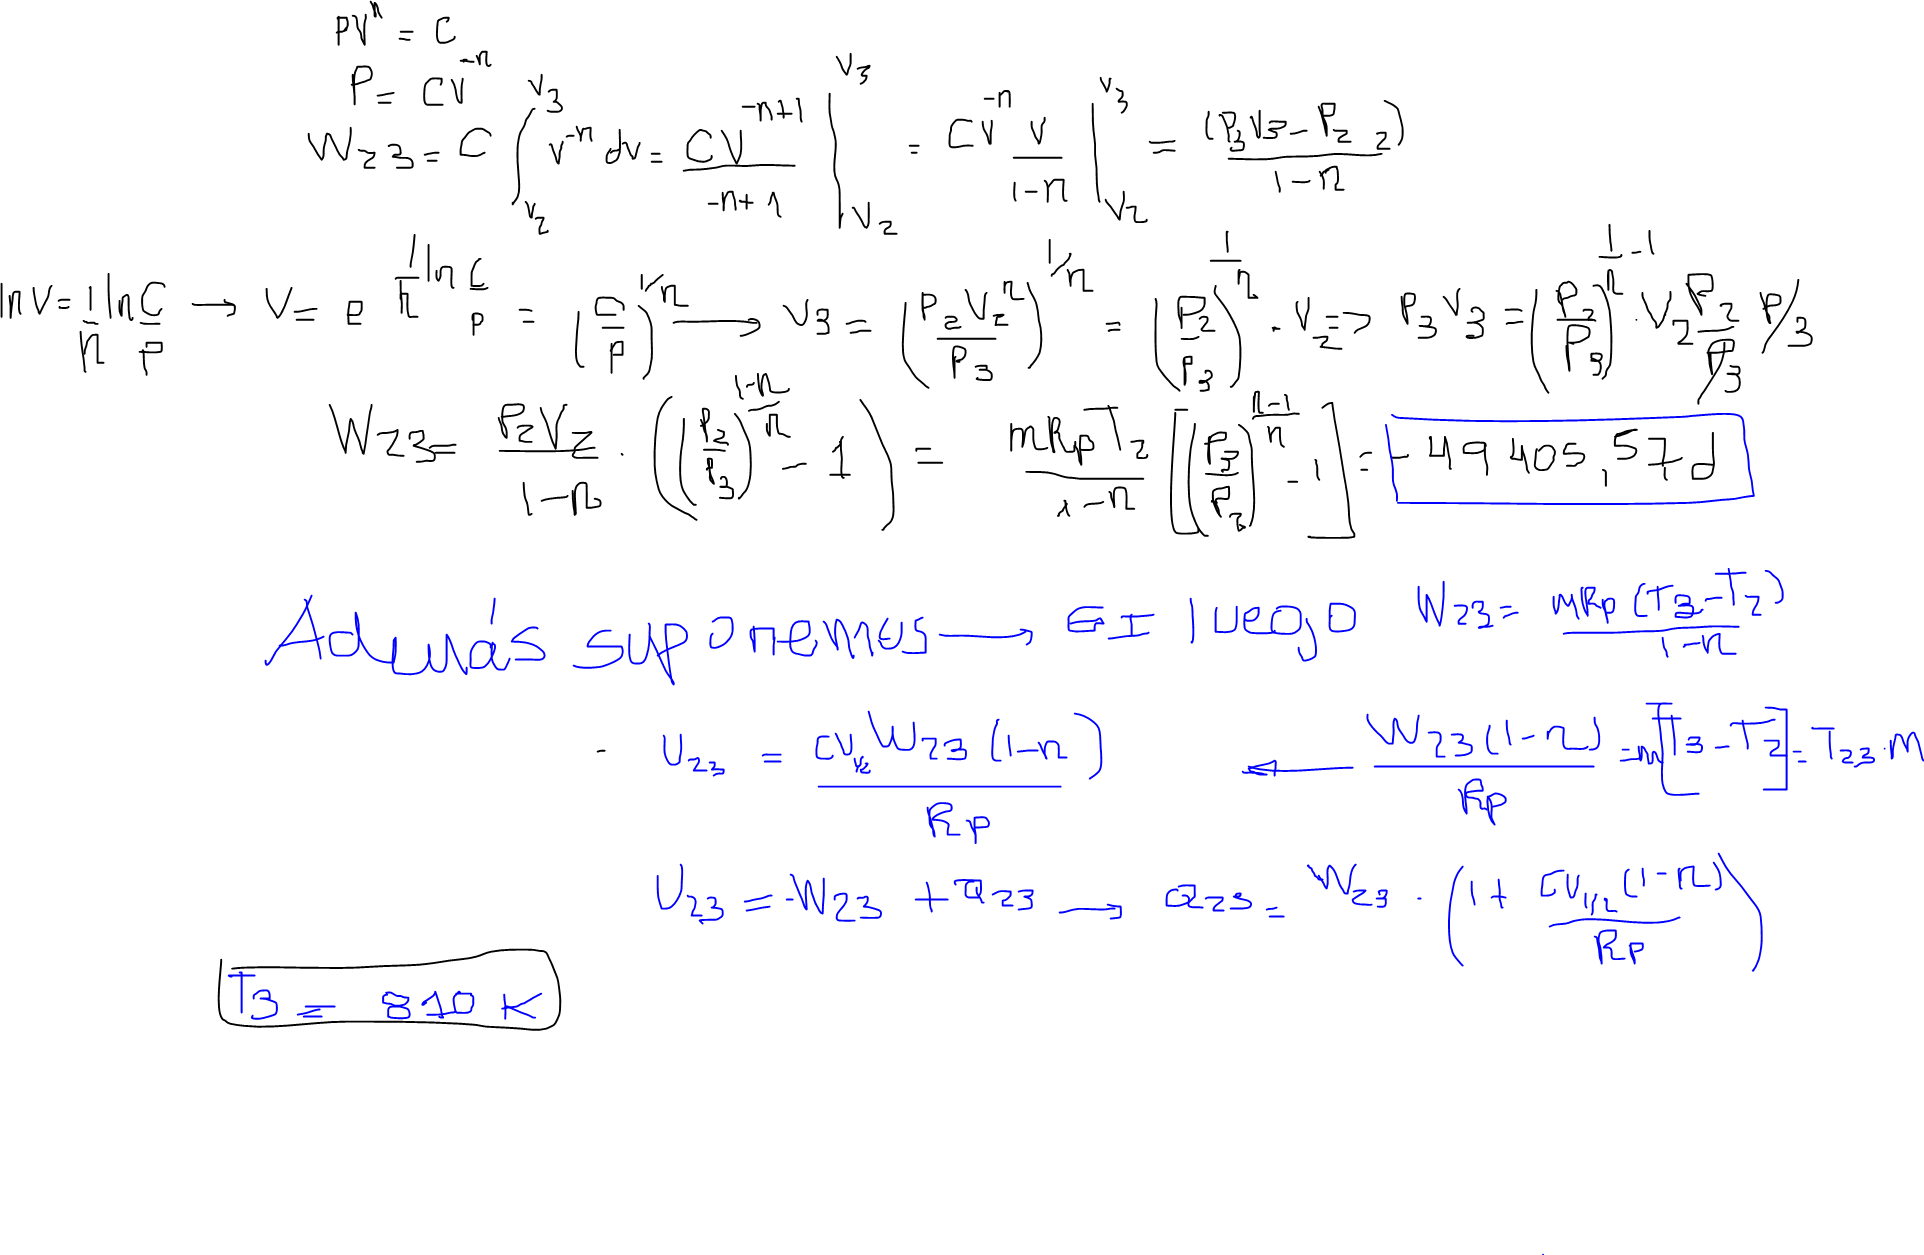 PVⁿ = C
P = CV⁻ⁿ
W₂₃ = C ∫_{V₂}^{V₃} V⁻ⁿ dv = CV⁻ⁿ⁺¹/(-n+1) |_{V₂}^{V₃} = CV⁻ⁿ V/(1-n) |_{V₂}^{V₃} = (P₃V₃ - P₂ ₂)/(1-n)
ln V = 1/n ln C/P → V = e^{1/n ln C/P} = (C/P)^{1/n} → V₃ = (P₂V₂ⁿ/P₃)^{1/n} = (P₂/P₃)^{1/n} · V₂ => P₃V₃ = (P₂/P₃)^{1/n - 1} · V₂ P₂/P₃ P/₃
W₂₃ = P₂V₂/(1-n) · ((P₂/P₃)^{(1-n)/n} - 1) = mRpT₂/(1-n) [(P₃/P₂)^{(n-1)/n} - 1] = -49405,57J
Además suponemos → GI luego W₂₃ = mRp(T₃-T₂)/(1-n)
U₂₃ = CV₁/₂ W₂₃(1-n)/Rp ← W₂₃(1-n)/Rp = m[T₃-T₂] = T₂₃·m
U₂₃ = -W₂₃ + Q₂₃ → Q₂₃ = W₂₃ · (1 + CV₁/₂(1-n)/Rp)
T₃ = 810 K